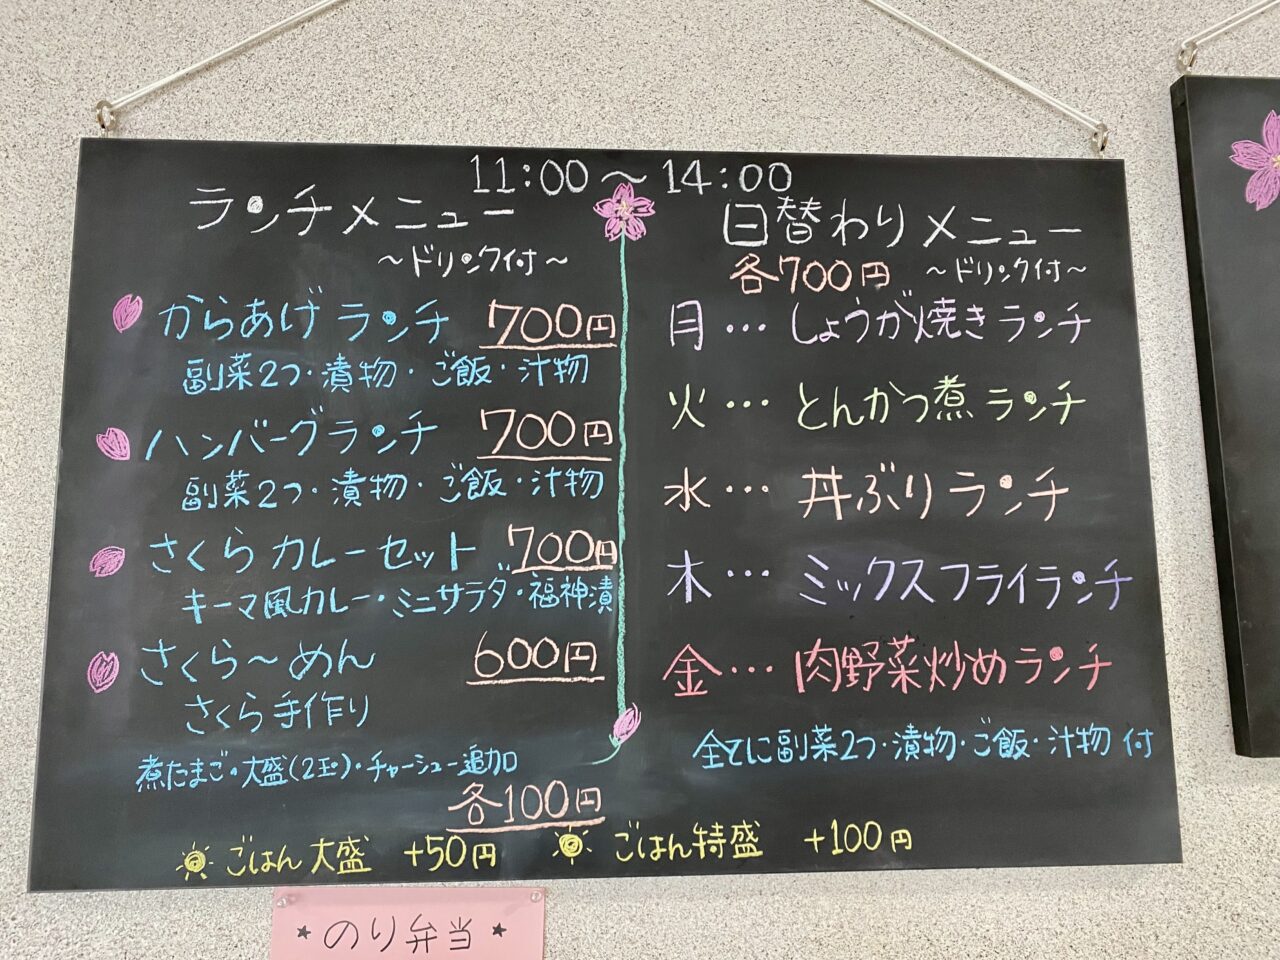 11:00～14:00
ランチメニュー
～ドリンク付～
からあげランチ 700円
副菜2つ・漬物・ご飯・汁物
ハンバーグランチ 700円
副菜2つ・漬物・ご飯・汁物
さくらカレーセット 700円
キーマ風カレー・ミニサラダ・福神漬
さくら～めん 600円
さくら手作り
煮たまご・大盛(2玉)・チャーシュー追加
各100円
日替わりメニュー
各700円 ～ドリンク付～
月…しょうが焼きランチ
火…とんかつ煮ランチ
水…丼ぶりランチ
木…ミックスフライランチ
金…肉野菜炒めランチ
全てに副菜2つ・漬物・ご飯・汁物 付
ごはん大盛 +50円 ごはん特盛 +100円
★のり弁当★